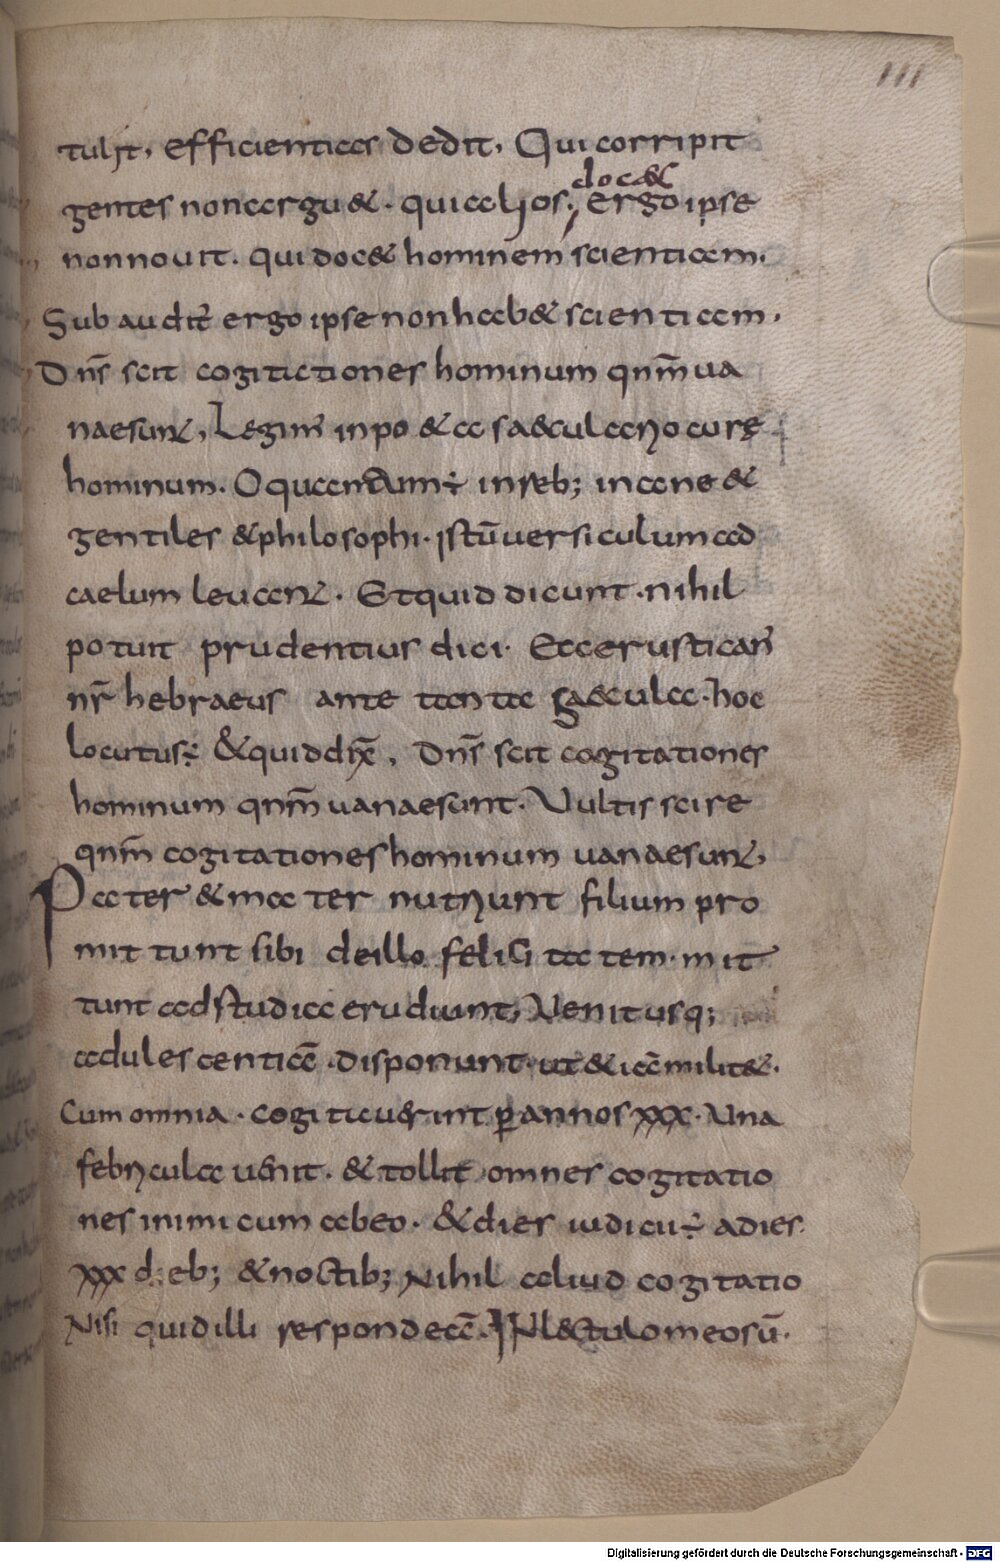 111
tulit, efficientias dedit, Qui corripit
docet
gentes non arguet. qui alios; ergo ipse
non novit. qui docet hominem scientiam.
Subaudit̄ ergo ipse non habet scientiam.
Dn̄s scit cogitationes hominum qnm̄ va
nae sunt, Legim̄
hominum. in reb; inane et
gentiles et philosophi. istū versiculum ad
caelum levant. Et quid dicunt. nihil
potuit prudentius dici. Ecce rustican̄
nr̄ hebraeus ante tanta saecula. hoc
locutus ÷ et quid dix̄, Dn̄s scit cogitationes
hominum qnm̄ vanae sunt. Vultis scire
qnm̄ cogitationes hominum vanae sunt,
Pater et mater nutriunt filium pro
mittunt sibi de illo felicitatem. mit
tunt ad studia erudiunt, Venit usq;
adulescentiā. disponunt. ut et iā militet.
Cum omnia. cogitaverint p̱ annos xxx. Una
febricula venit. et tollit omnes cogitatio
nes inimicum abeo. et dies iudicii ÷ a dies
xxx dieb; et noctib; Nihil aliud cogitatio
Nisi quid illi respondeā. IN lectulo meo sū.
Digitalisierung gefördert durch die Deutsche Forschungsgemeinschaft - DFG